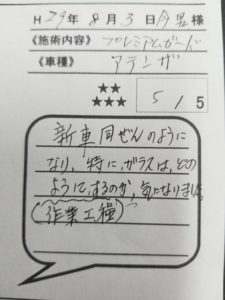 H29年 8月 3日 今井様
《施術内容》 プレミアムガード
《車種》 アテンザ
★★
★★★ 5 / 5
新車同ぜんのように
なり、特に、ガラスは、どの
ようにするのか、気になりました
(作業工程)